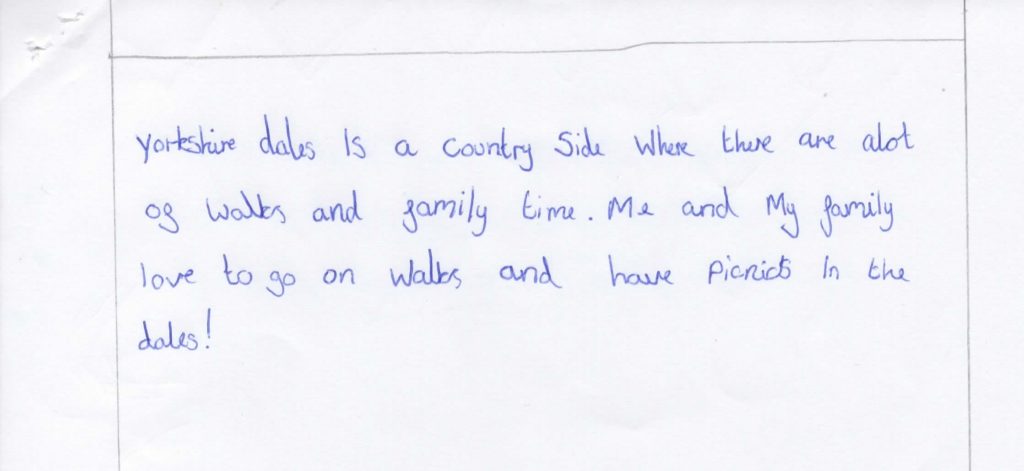 Yorkshire dales Is a Country Side Where there are alot
of Walks and family time. Me and My family
love to go on Walks and have Picnics In the
dales!